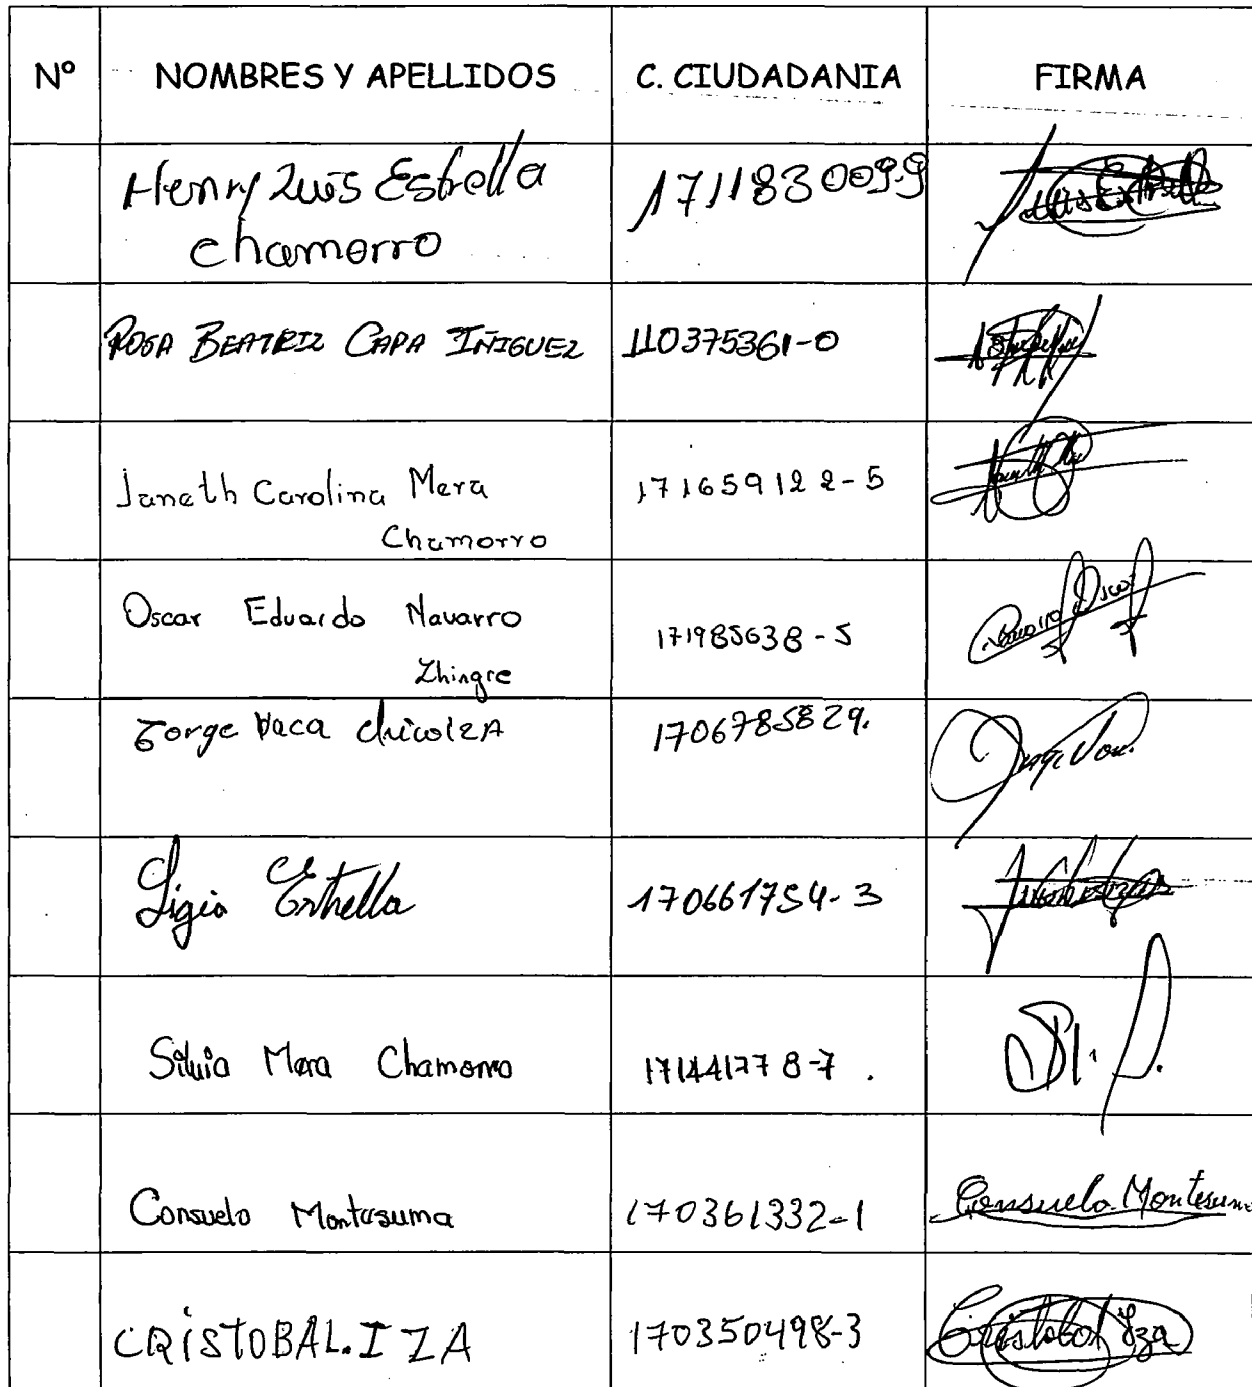 Nº NOMBRES Y APELLIDOS C. CIUDADANIA FIRMA
Henry Luis Estrella 171183009-9
Chamorro
ROSA BEATRIZ CAPA IÑIGUEZ 110375361-0
Janeth Carolina Mera 171659122-5
Chamorro
Oscar Eduardo Navarro 171985638-5
Zhingre
Jorge Vaca chicoIZA 1706785829.
Ligia Estrella 170661754-3
Silvia Mera Chamorro 171441778-7.
Consuelo Montesuma 170361332-1 Consuelo Montesuma
CRISTOBAL.IZA 170350498-3 Cristobal Iza